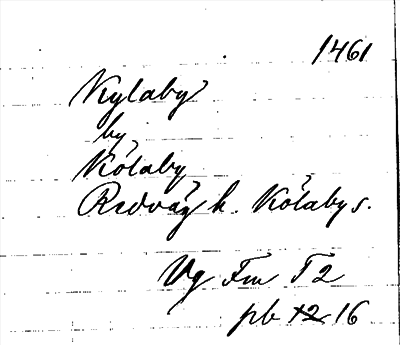 1461
Kylaby
by
Kölaby
Redväg h. Kölaby s.
Vg Fm T2
pb 16